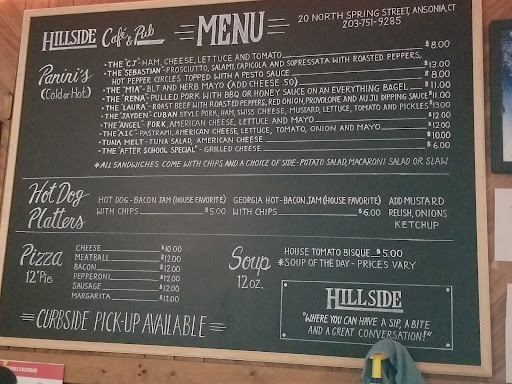 HILLSIDE Café & Pub
MENU
20 NORTH SPRING STREET, ANSONIA, CT
203-751-9285
Panini's
(Cold or Hot)
- THE "CJ" - HAM, CHEESE, LETTUCE AND TOMATO $8.00
- THE "SEBASTIAN" - PROSCIUTTO, SALAMI, CAPICOLA AND SOPRESSATA WITH ROASTED PEPPERS,
HOT PEPPER CIRCLES TOPPED WITH A PESTO SAUCE $13.00
- THE "MIA" - BLT AND HERB MAYO (ADD CHEESE 50) $8.00
- THE "RENA" - PULLED PORK WITH BBQ OR HONEY SAUCE ON AN EVERYTHING BAGEL $11.00
- THE "LAURA" - ROAST BEEF WITH ROASTED PEPPERS, RED ONION, PROVOLONE AND AU JU DIPPING SAUCE
- THE "JAYDEN" - CUBAN STYLE PORK, HAM, SWISS CHEESE, MUSTARD, LETTUCE, TOMATO AND PICKLES $13.00
- THE "ANGEL" - PORK, AMERICAN CHEESE, LETTUCE AND MAYO $12.00
- THE "AIC" - PASTRAMI, AMERICAN CHEESE, LETTUCE, TOMATO, ONION AND MAYO $12.00
- TUNA MELT - TUNA SALAD, AMERICAN CHEESE $10.00
- THE "AFTER SCHOOL SPECIAL" - GRILLED CHEESE $6.00
* ALL SANDWICHES COME WITH CHIPS AND A CHOICE OF SIDE - POTATO SALAD, MACARONI SALAD OR SLAW
Hot Dog
Platters
HOT DOG - BACON JAM (HOUSE FAVORITE)
WITH CHIPS $5.00
GEORGIA HOT - BACON JAM (HOUSE FAVORITE)
WITH CHIPS $6.00
ADD MUSTARD
RELISH, ONIONS
KETCHUP
Pizza
12" Pie
CHEESE $10.00
MEATBALL $12.00
BACON $12.00
PEPPERONI $12.00
SAUSAGE $12.00
MARGARITA $12.00
Soup
12 oz.
HOUSE TOMATO BISQUE $5.00
* SOUP OF THE DAY - PRICES VARY
CURBSIDE PICK-UP AVAILABLE
HILLSIDE
"WHERE YOU CAN HAVE A SIP, A BITE
AND A GREAT CONVERSATION!"